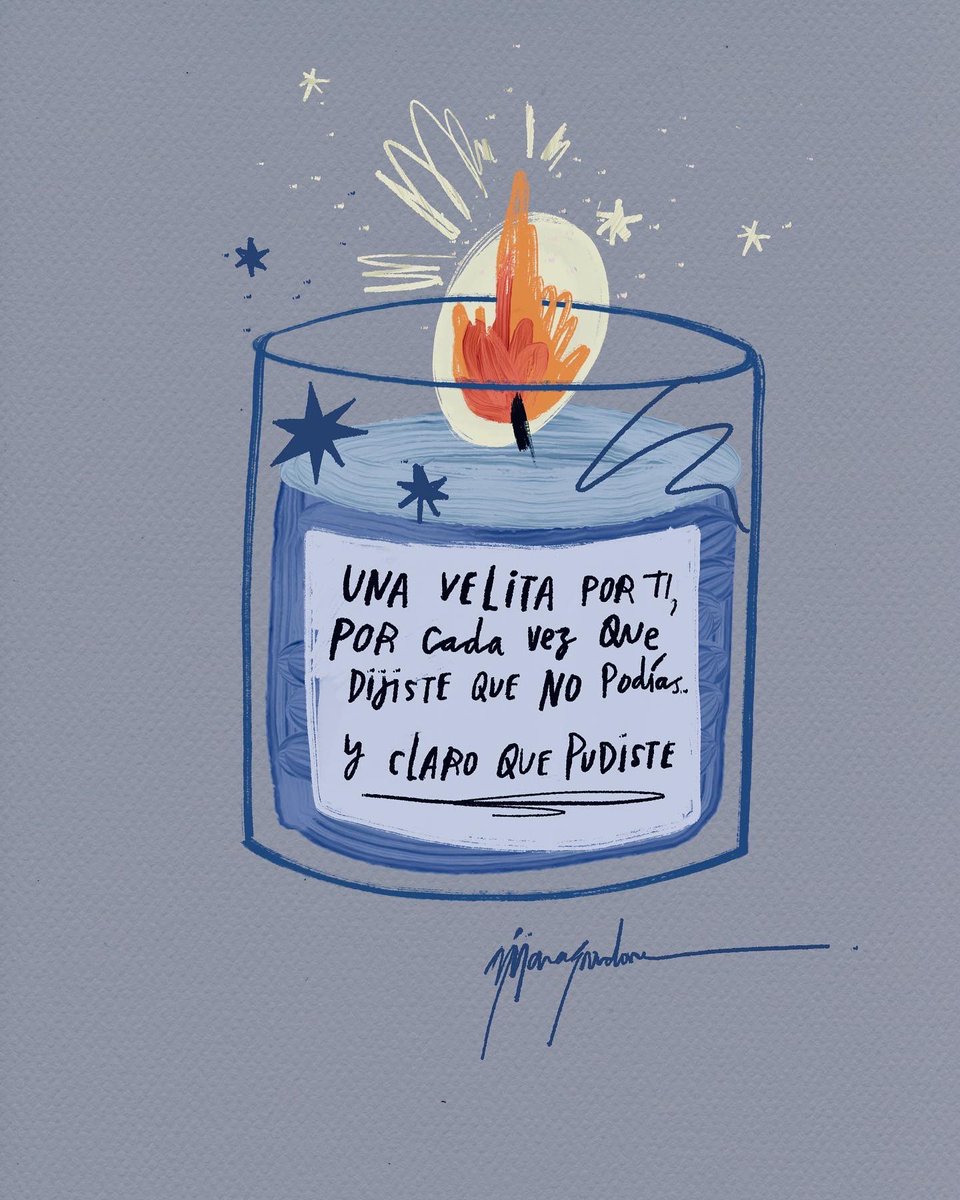 UNA VELITA POR TI,
POR cada vez QUe
DIJISTE QUE NO Podías.
y cLARO QUE PUDISTE